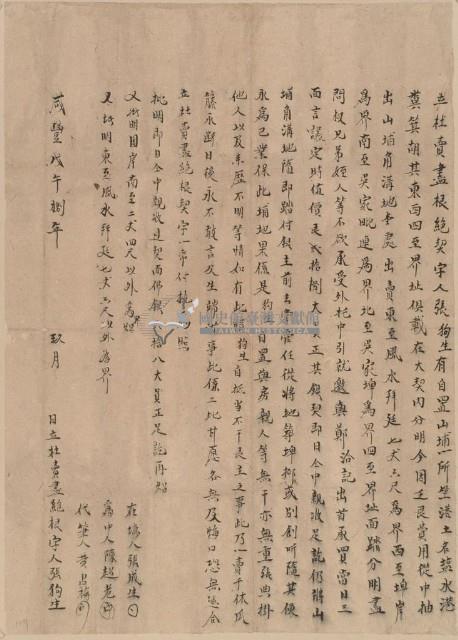 立杜賣盡根絕契字人張狗生有自置山埔一所坐港土名藍水港
糞箕湖其東西四至界址俱載在大契內分明今因乏艮費用從中抽
出山埔角溝地壹處出賣東至風水拜庭七丈六尺為界西至埤岸
為界南至吳家毗連為界北至吳家埤為界四至界址面踏分明盡
問叔兄弟姪人等不欲承受外托中引就邀與鄭 治記出首承買當日三
面言議定時值價艮貳拾捌大員正其錢契即日仝中親收足訖仍將山
埔角溝地隨即踏付銀主前去掌管任從將地築埤掘或別創听隨其便
永為己業保此埔地果係是狗生自置與房親人等無干亦無重張典掛
他人以及來歷不明等情如有此情狗生自抵當不干艮主之事此乃一賣千休瓜
籐永斷日後永不敢言及生端滋事此係二比甘愿各無反悔口恐無憑合
立杜賣盡絕根契字一帋付執為照
批明即日仝中親收過契面佛銀貳拾八大員正足訖再炤
又批明田岸南至二丈四尺以外為界
又批明東至風水拜庭七丈六尺以外為界
在塲人張成生
為中人陳趙老
代筆人黃昌梅
咸豐戊午捌年 玖月 日立杜賣盡絕根字人張狗生
國史館臺灣文獻館
TAIWAN HISTORICA